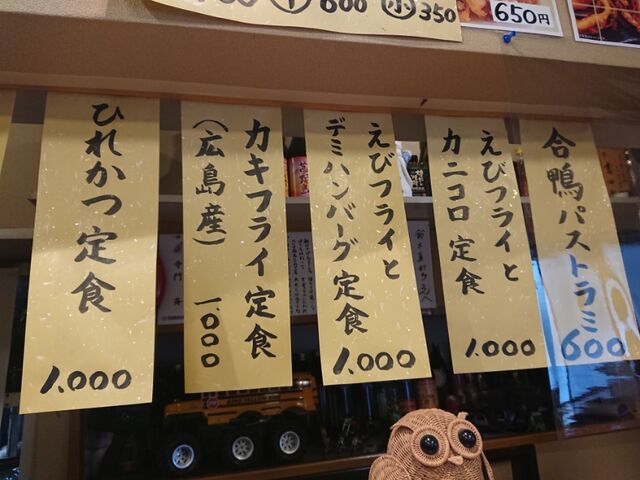 600 小 350
650円
ひれかつ定食
1.000
カキフライ定食
(広島産)
1.000
えびフライと
デミハンバーグ定食
1.000
えびフライと
カニコロ定食
1.000
合鴨パストラミ
600